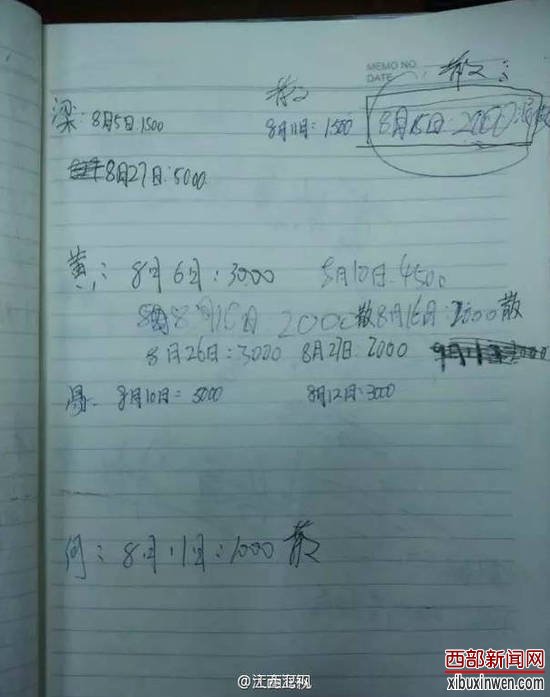 MEMO NO.
DATE
散
散:
梁: 8月5日:1500 8月11日:1500 8月15日:2000
8月27日:5000
黄: 8月6日:3000 8月10日:4500
8月15日 2000散 8月16日:2000散
8月26日:3000 8月27日:2000
8月10日:5000 8月12日:3000
何: 8月11日:1000 散
@江西卫视
西部新闻网
xibuxinwen.com